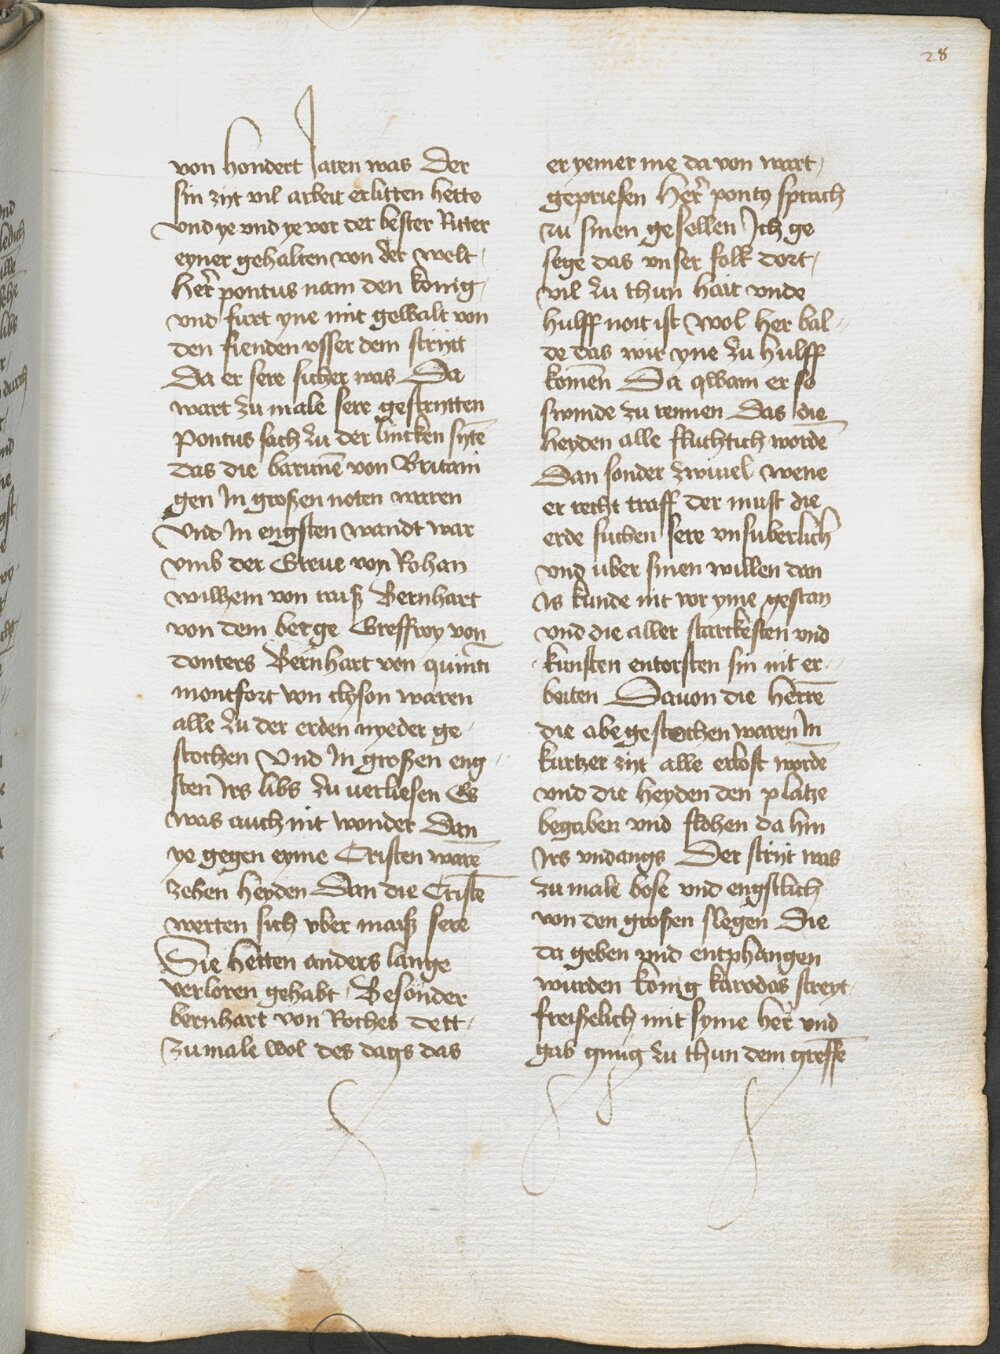 28
von hondert Jaren was Der
sin zijt vil arbeit erlitten hette
vnd ye vnd ye vor der bester Ritter
eyner gehalten von der welt
her pontus nam den konig
vnd furt yne mit gewalt von
den fienden vsser dem strijt
Da er sere sicher was Da
wart zu male sere gestrytten
Pontus sach zu der lincken sijtē
das die barunē von Britani
gen In großen noten waren
Vnd In engsten wandt war
vmb der Greue von Rohan
wilhem von Bernhart
von dem berge Greffroy von
donters Bernhart von
montfort von thyson waren
alle zu der erden nyeder ge
stochen Vnd In großen eng
sten Irs libs zu verliesen Es
was auch nit wonder Dan
ye gegen eyme Cristen warē
zehen heyden Dan die Cristē
werten sich vber maiß sere
Sie hetten anders lange
verloren gehabt Besonder
bernhart von Roches dett
zu male wol des dags das
er yemer me da von wart
gepriesen Her̄ pontus sprach
zu sinen gesellen Ich ge
sege das vnser folk dort
vil zu thun hait vnde
hulff noit ist Wol her bal
de das wir yne zu hulff
komen Da qwam er so
swinde zu rennen Das die
heyden alle fluchtich wordē
Dan sonder zwiuel wene
er recht traff der must die
erde suchen sere vnsuberlich
vnd uber sinen willen dan
Is kunde nit vor yme gestan
vnd die aller starckesten vnd
kunsten entorsten sin nit er
beiten Dauon die herrē
die abe gestochen waren In
kurtzer zijt alle erlost wordē
vnd die heyden den platze
begaben vnd flohen da hin
Irs vndangs Der strijt was
zu male bose vnd engstlich
von den großen slegen Die
da geben vnd entphangen
wurden konig karodas streyt
freißelich mit syme her vnd
gab gnug zu thun dem